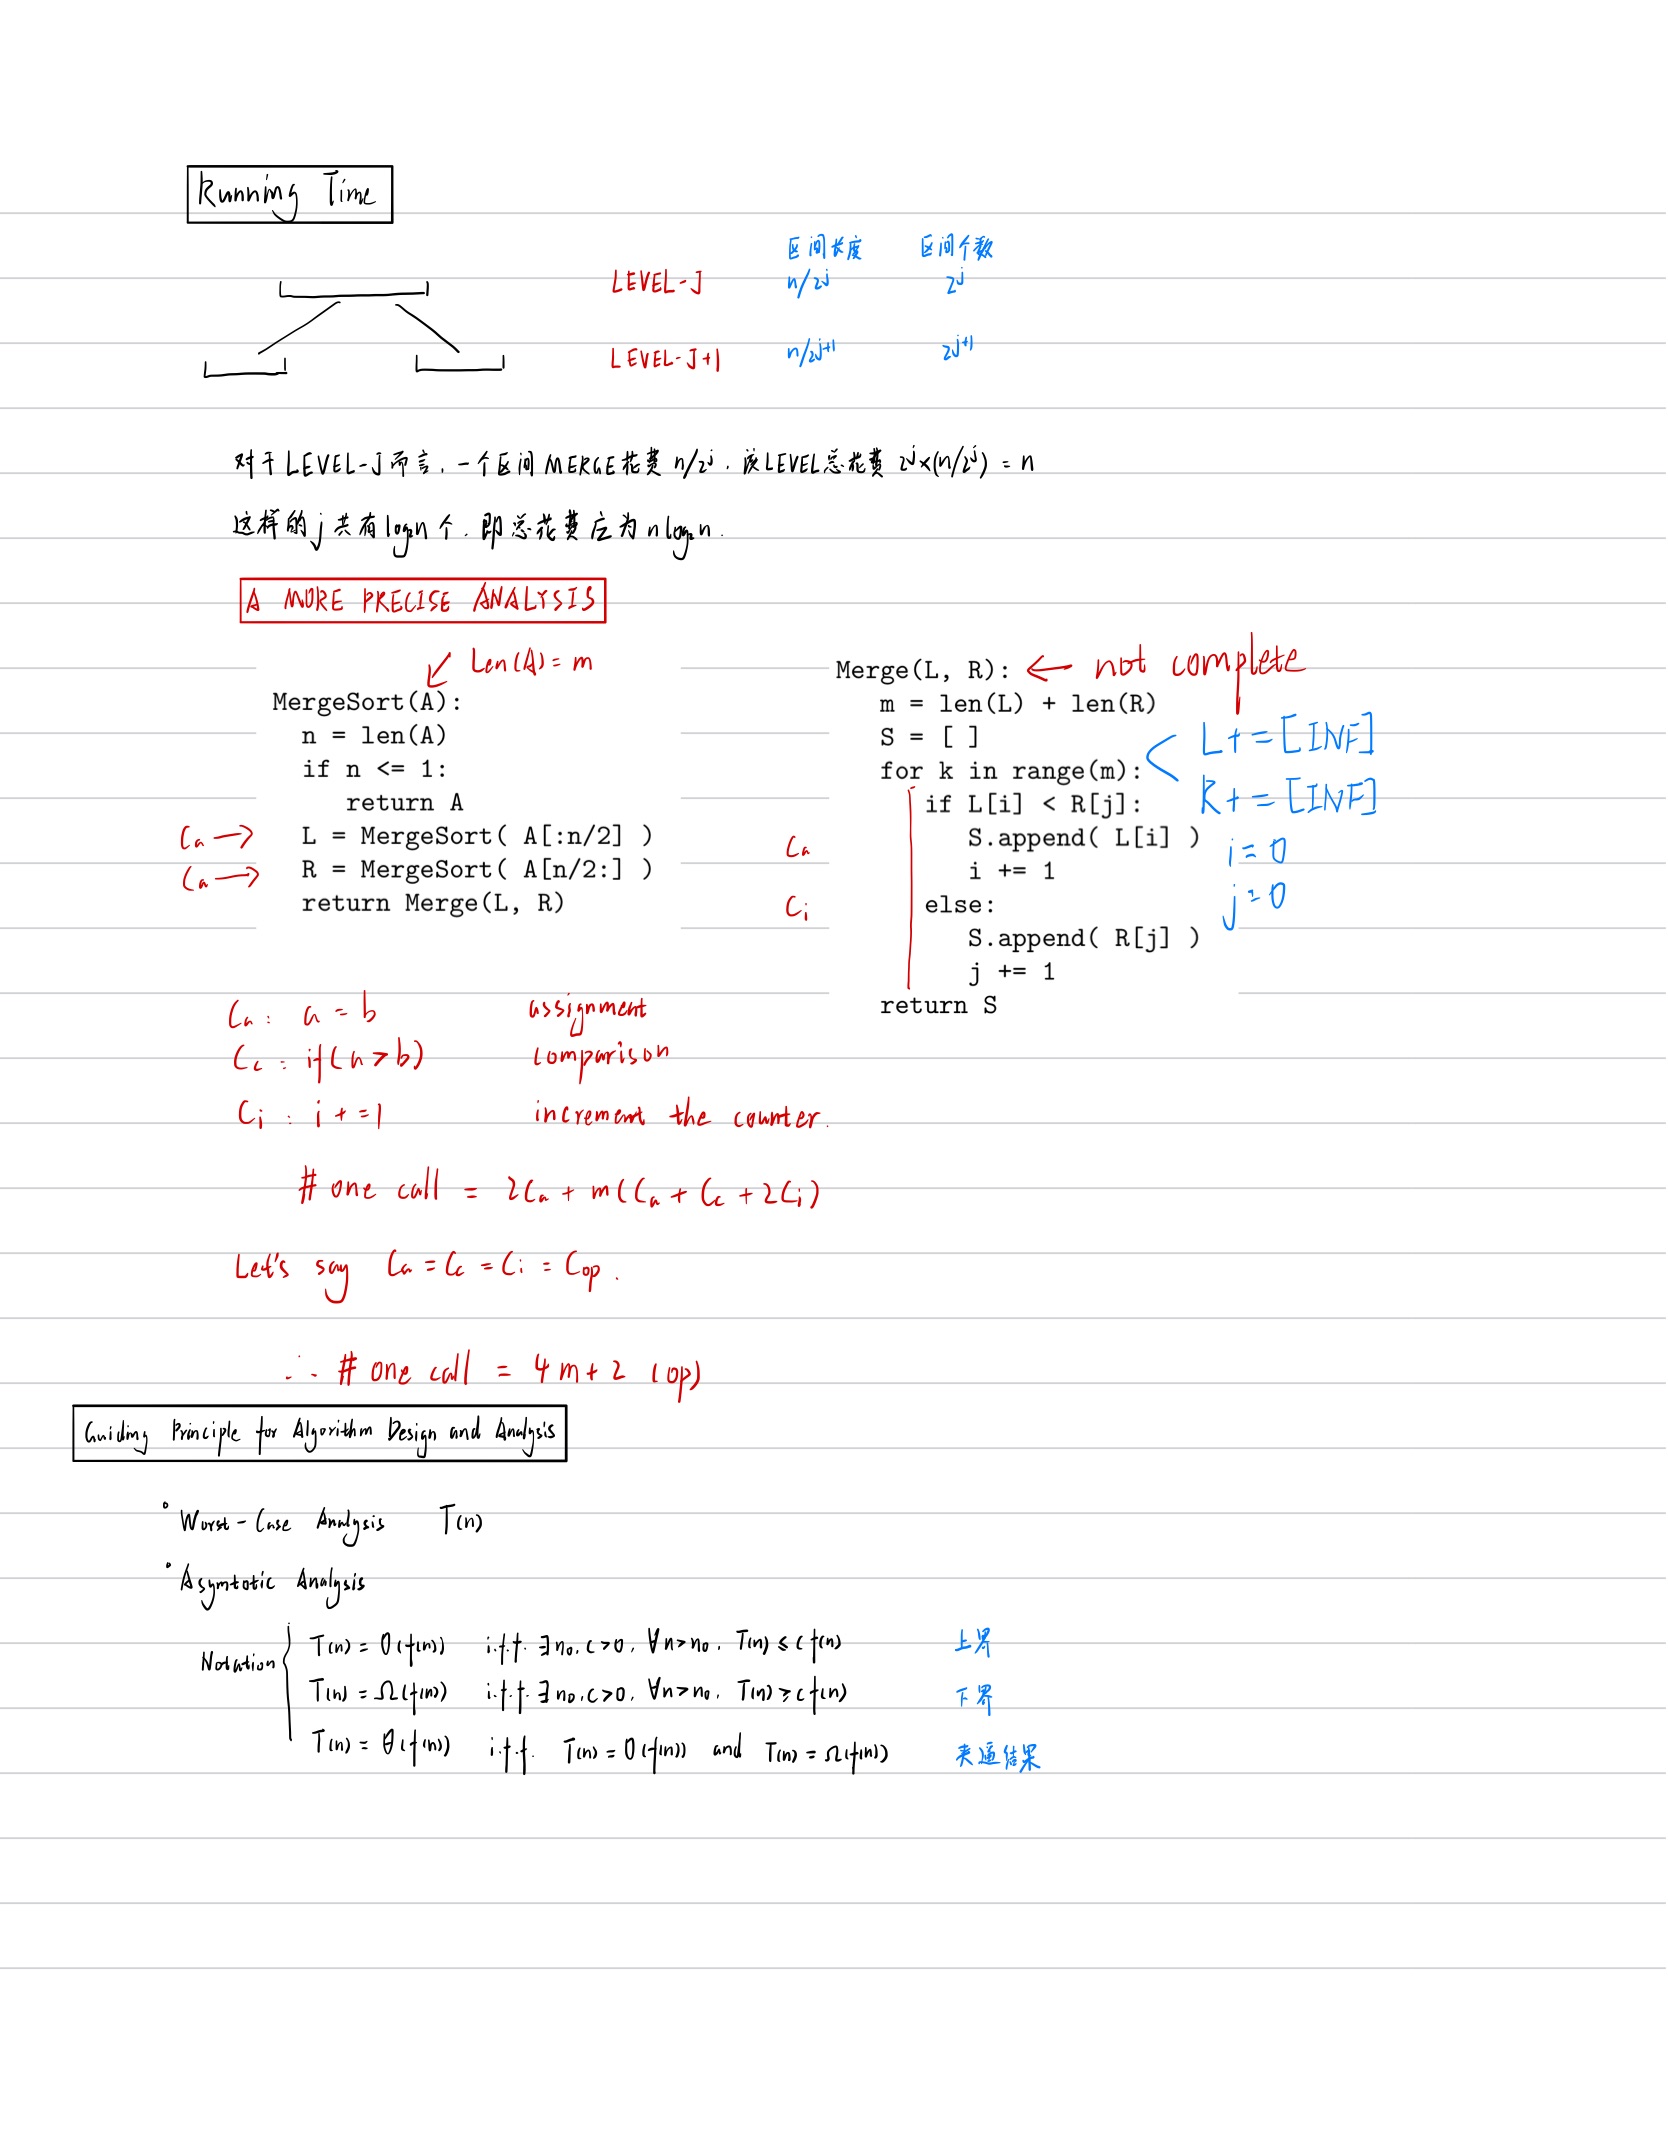 Running Time
区间长度 区间个数
LEVEL-J n/2^j 2^j
LEVEL-J+1 n/2^{j+1} 2^{j+1}
对于LEVEL-J而言,一个区间MERGE花费 n/2^j,该LEVEL总花费 2^j×(n/2^j) = n
这样的j共有log₂n个,即总花费应为nlog₂n.
A MORE PRECISE ANALYSIS
↙ Len(A)=m
MergeSort(A):
n = len(A)
if n <= 1:
return A
Ca → L = MergeSort( A[:n/2] )
Ca → R = MergeSort( A[n/2:] )
return Merge(L, R)
Merge(L, R): ← not complete
m = len(L) + len(R)
S = [ ]
for k in range(m):
if L[i] < R[j]:
S.append( L[i] )
i += 1
else:
S.append( R[j] )
j += 1
return S
L+=[INF]
R+=[INF]
i=0
j=0
Ca
Ci
Ca: a=b assignment
Cc: if(a>b) comparison
Ci: i+=1 increment the counter.
# one call = 2Ca + m(Ca + Cc + 2Ci)
Let's say Ca = Cc = Ci = Cop.
∴ # one call = 4m+2 (op)
Guiding Principle for Algorithm Design and Analysis
• Worst-Case Analysis T(n)
• Asymtotic Analysis
Notation
T(n) = O(f(n)) i.f.f. ∃n₀,c>0, ∀n>n₀, T(n) ≤ cf(n) 上界
T(n) = Ω(f(n)) i.f.f. ∃n₀,c>0, ∀n>n₀, T(n) ≥ cf(n) 下界
T(n) = θ(f(n)) i.f.f. T(n) = O(f(n)) and T(n) = Ω(f(n)) 夹逼结果